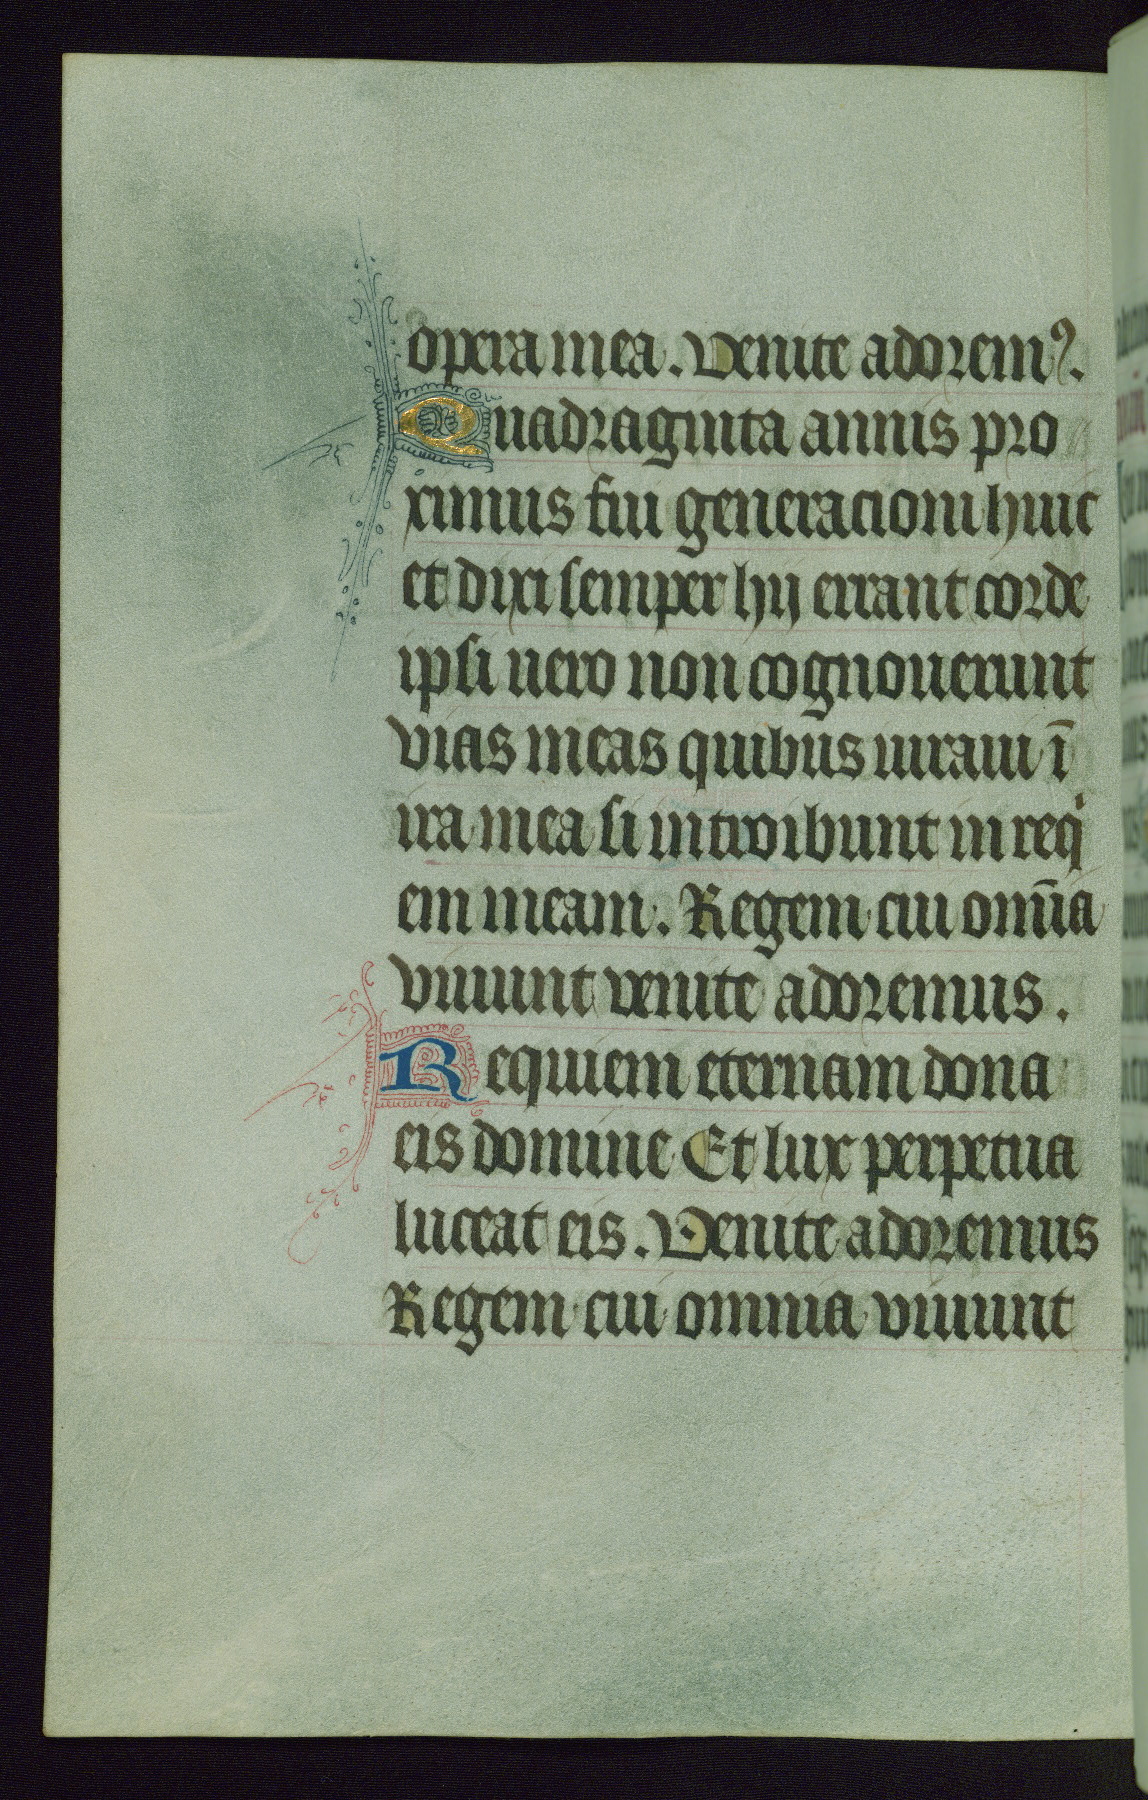 opera mea. Venite adoremꝰ.
Quadraginta annis pro
ximus fui generacioni huic
et dixi semper hij errant corde
ipsi uero non cognouerunt
vias meas quibus iuraui ī
ira mea si introibunt in req
em meam. Regem cui om̄ia
viuunt venite adoremus.
Requiem eternam dona
eis domine Et lux perpetua
luceat eis. Venite adoremus
Regem cui omnia viuunt